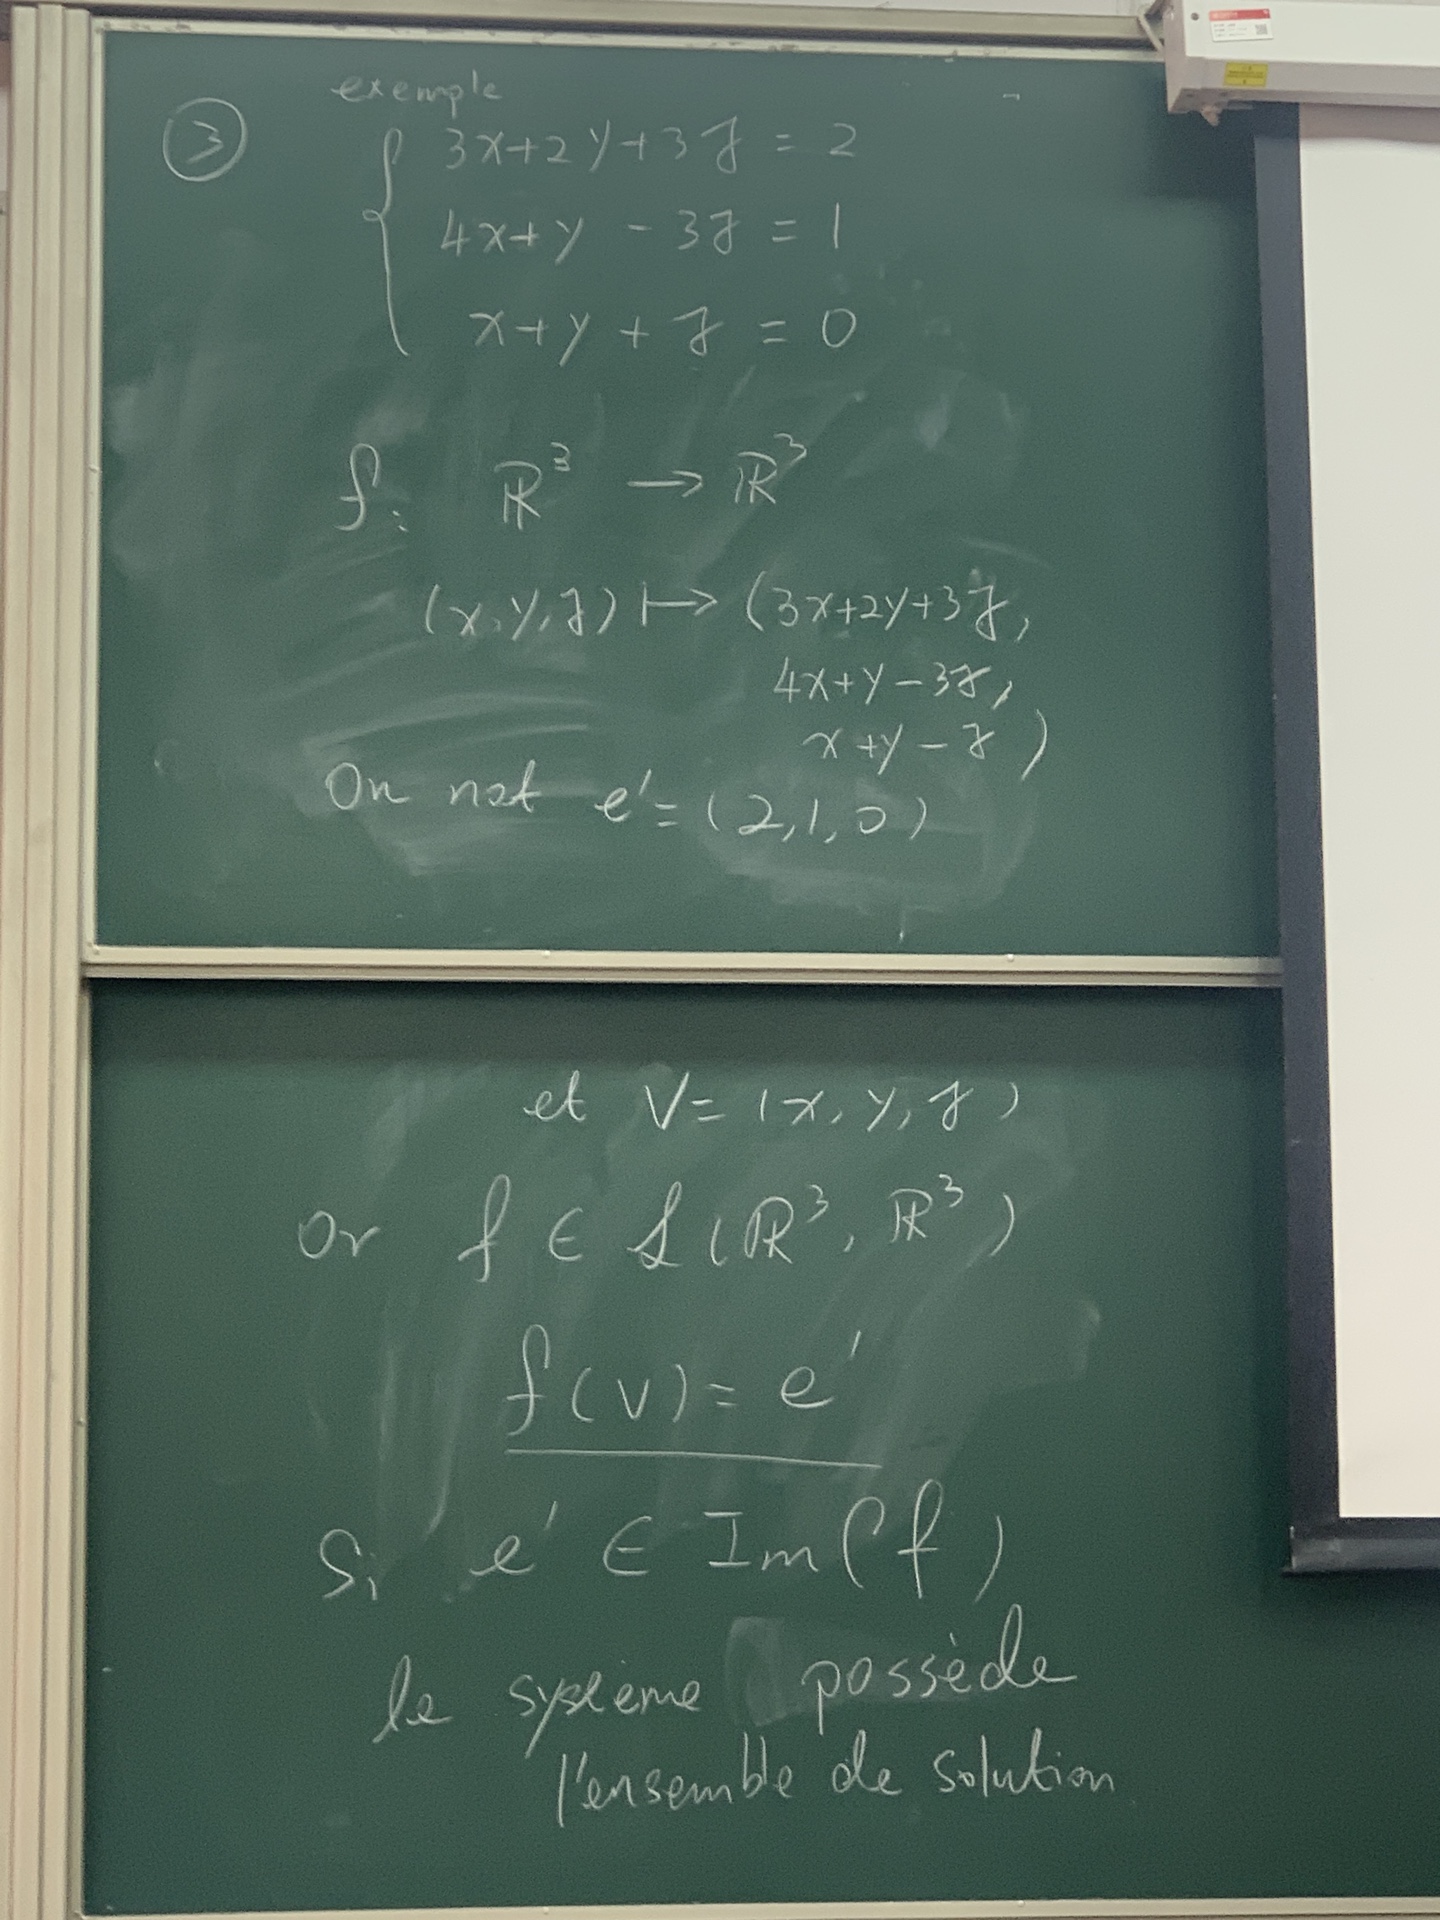 exemple
③
3x+2y+3z = 2
4x+y -3z = 1
x+y+z = 0
f: ℝ³ → ℝ³
(x,y,z) ↦ (3x+2y+3z,
4x+y-3z,
x+y-z)
On not e'=(2,1,0)
et V=(x,y,z)
Or f ∈ ℒ(ℝ³, ℝ³)
f(v)= e'
Si e' ∈ Im(f)
le système possède
l'ensemble de solution